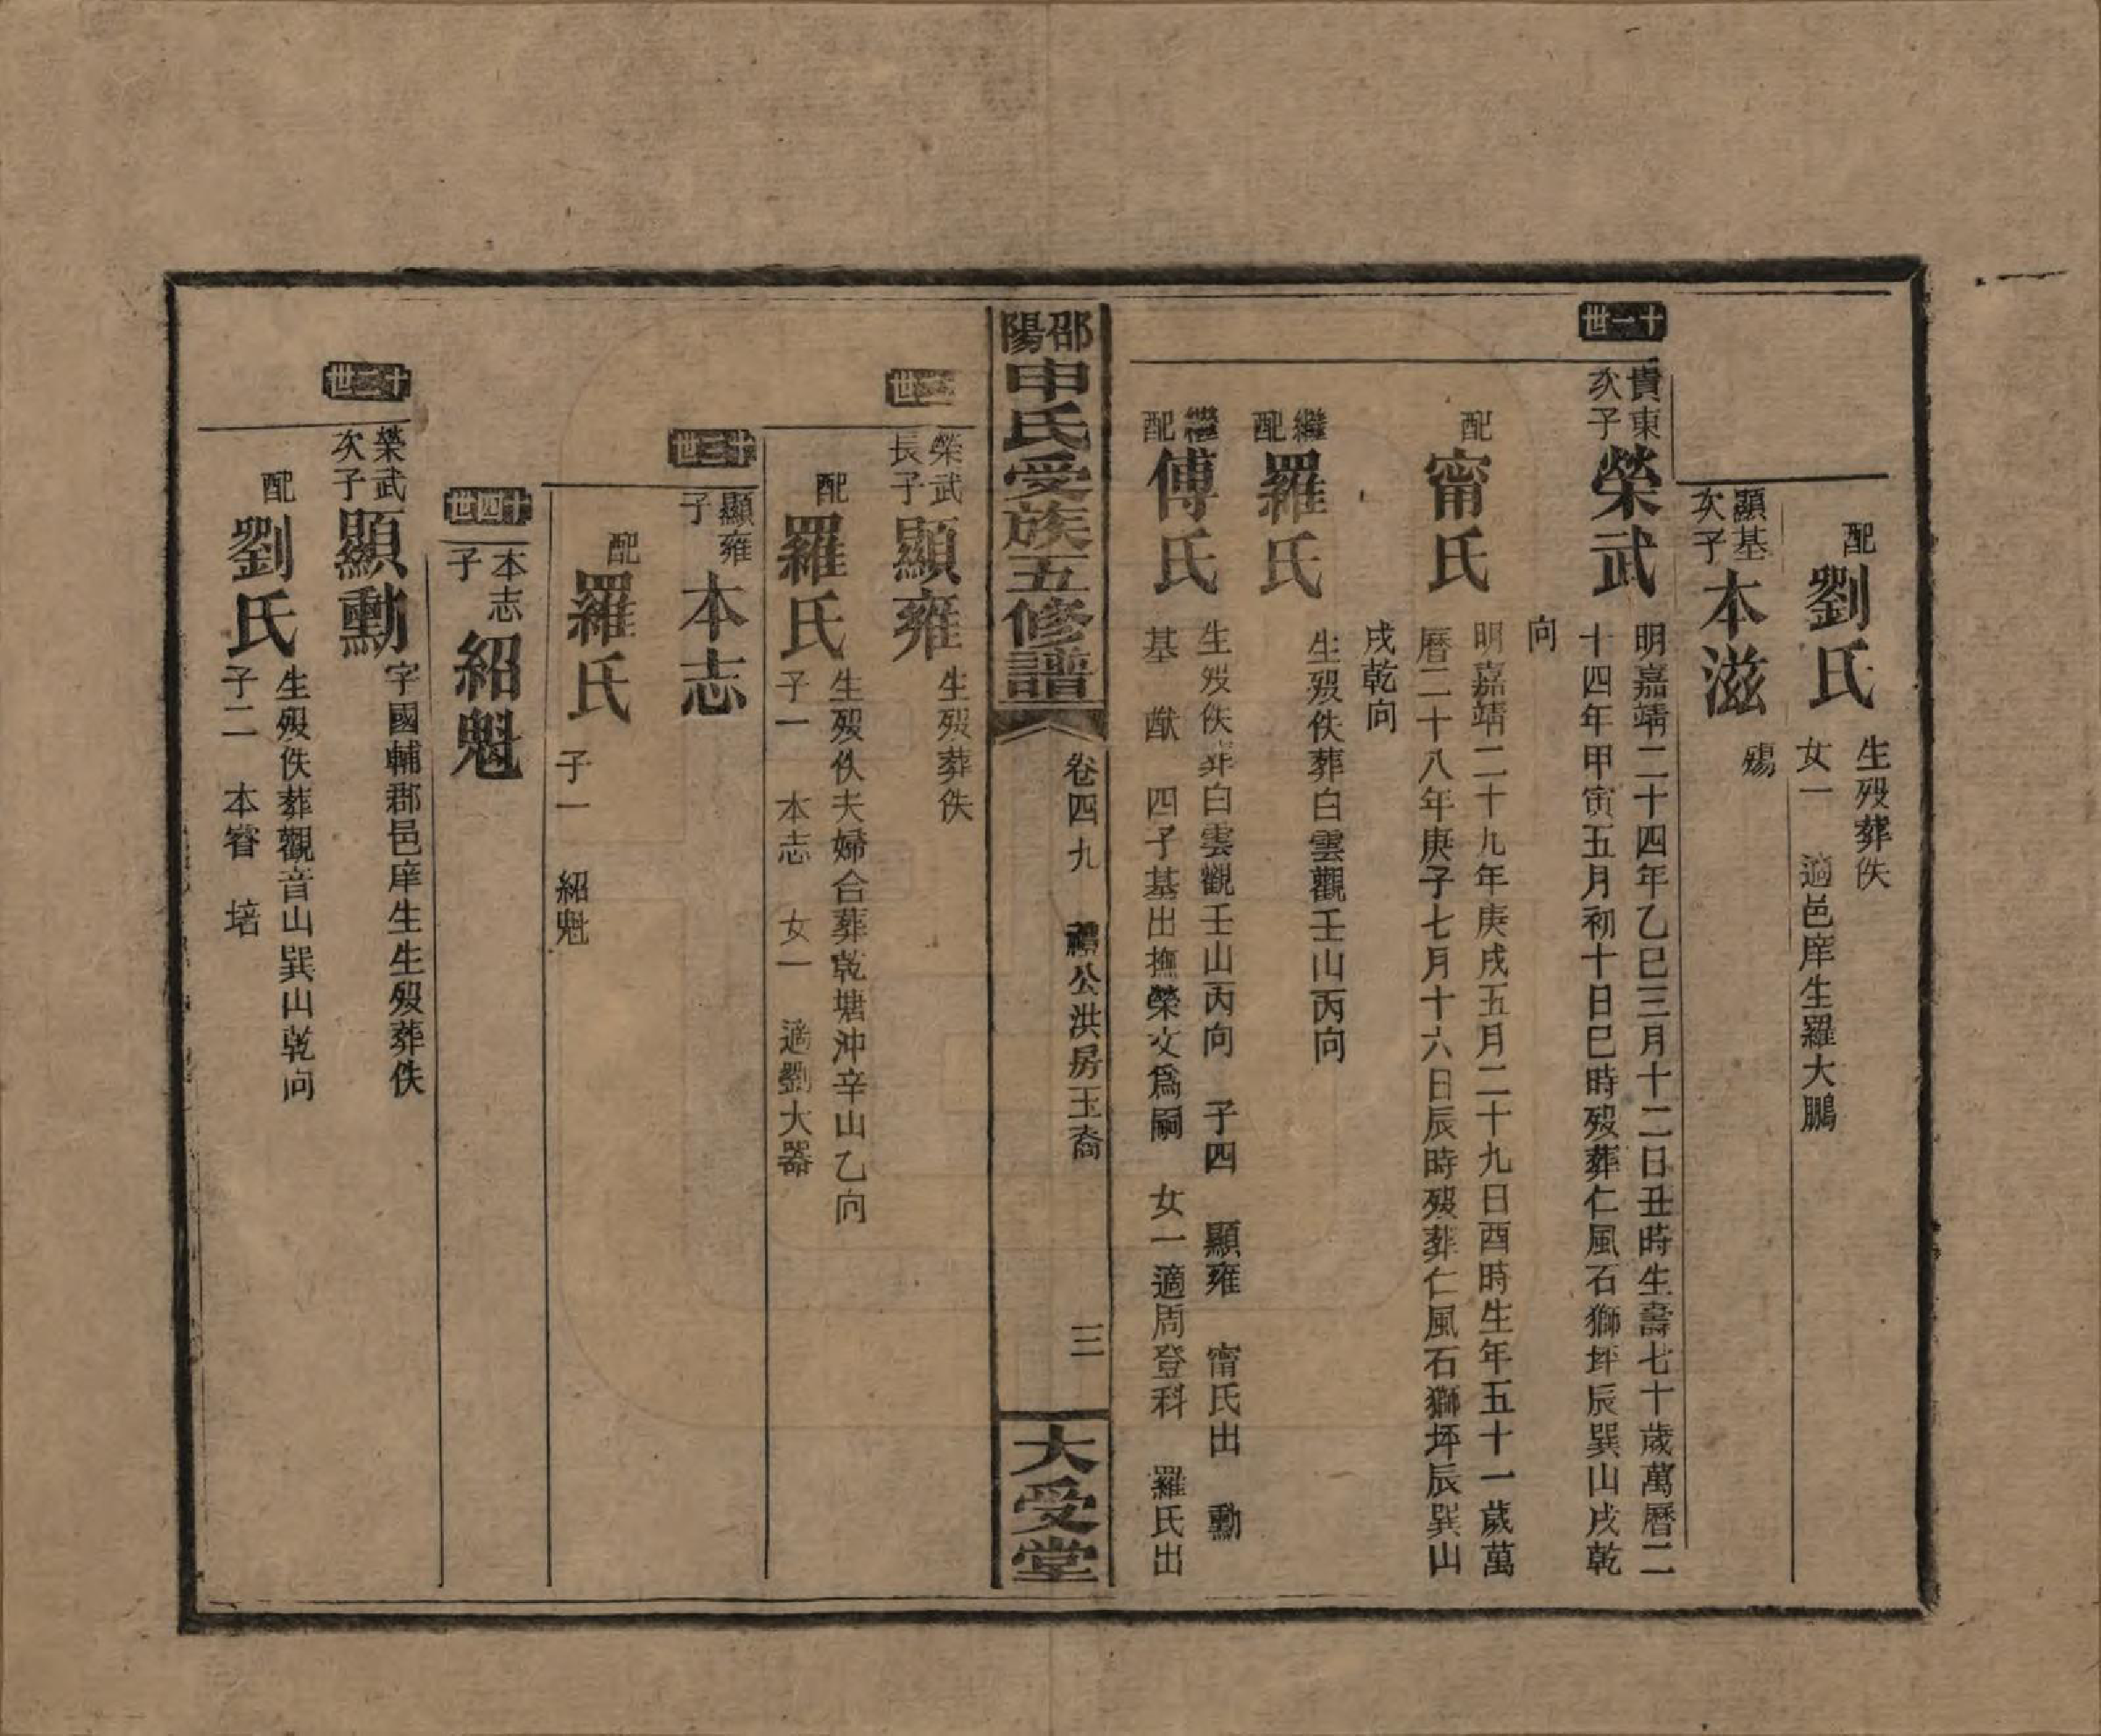 配
劉氏
生歿葬佚
女一 適邑庠生羅大鵬
顯基
次子
本滋
殤
十一世
貴東
次子
榮武
明嘉靖二十四年乙巳三月十二日丑時生壽七十歲萬曆二
十四年甲寅五月初十日巳時歿葬仁風石獅坪辰巽山戌乾
向
配
甯氏
明嘉靖二十九年庚戌五月二十九日酉時生年五十一歲萬
曆二十八年庚子七月十六日辰時歿葬仁風石獅坪辰巽山
戌乾向
繼
配
羅氏
生歿佚葬白雲觀壬山丙向
繼
配
傅氏
生歿佚葬白雲觀壬山丙向 子四 顯雍 甯氏出 勳
基 猷 四子基出撫榮文爲嗣 女一適周登科 羅氏出
邵陽申氏受族五修譜
卷四九 禮公洪房玉裔
三
大受堂
十二世
榮武
長子
顯雍
生歿葬佚
配
羅氏
生歿佚夫婦合葬乾塘沖辛山乙向
子一 本志 女一 適劉大器
十三世
顯雍
子
本志
配
羅氏
子一 紹魁
十四世
本志
子
紹魁
十二世
榮武
次子
顯勳
字國輔郡邑庠生生歿葬佚
配
劉氏
生歿佚葬觀音山巽山乾向
子二 本睿 培